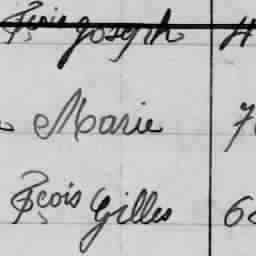 Joseph 4
Marie 7
Fçois Gilles 6